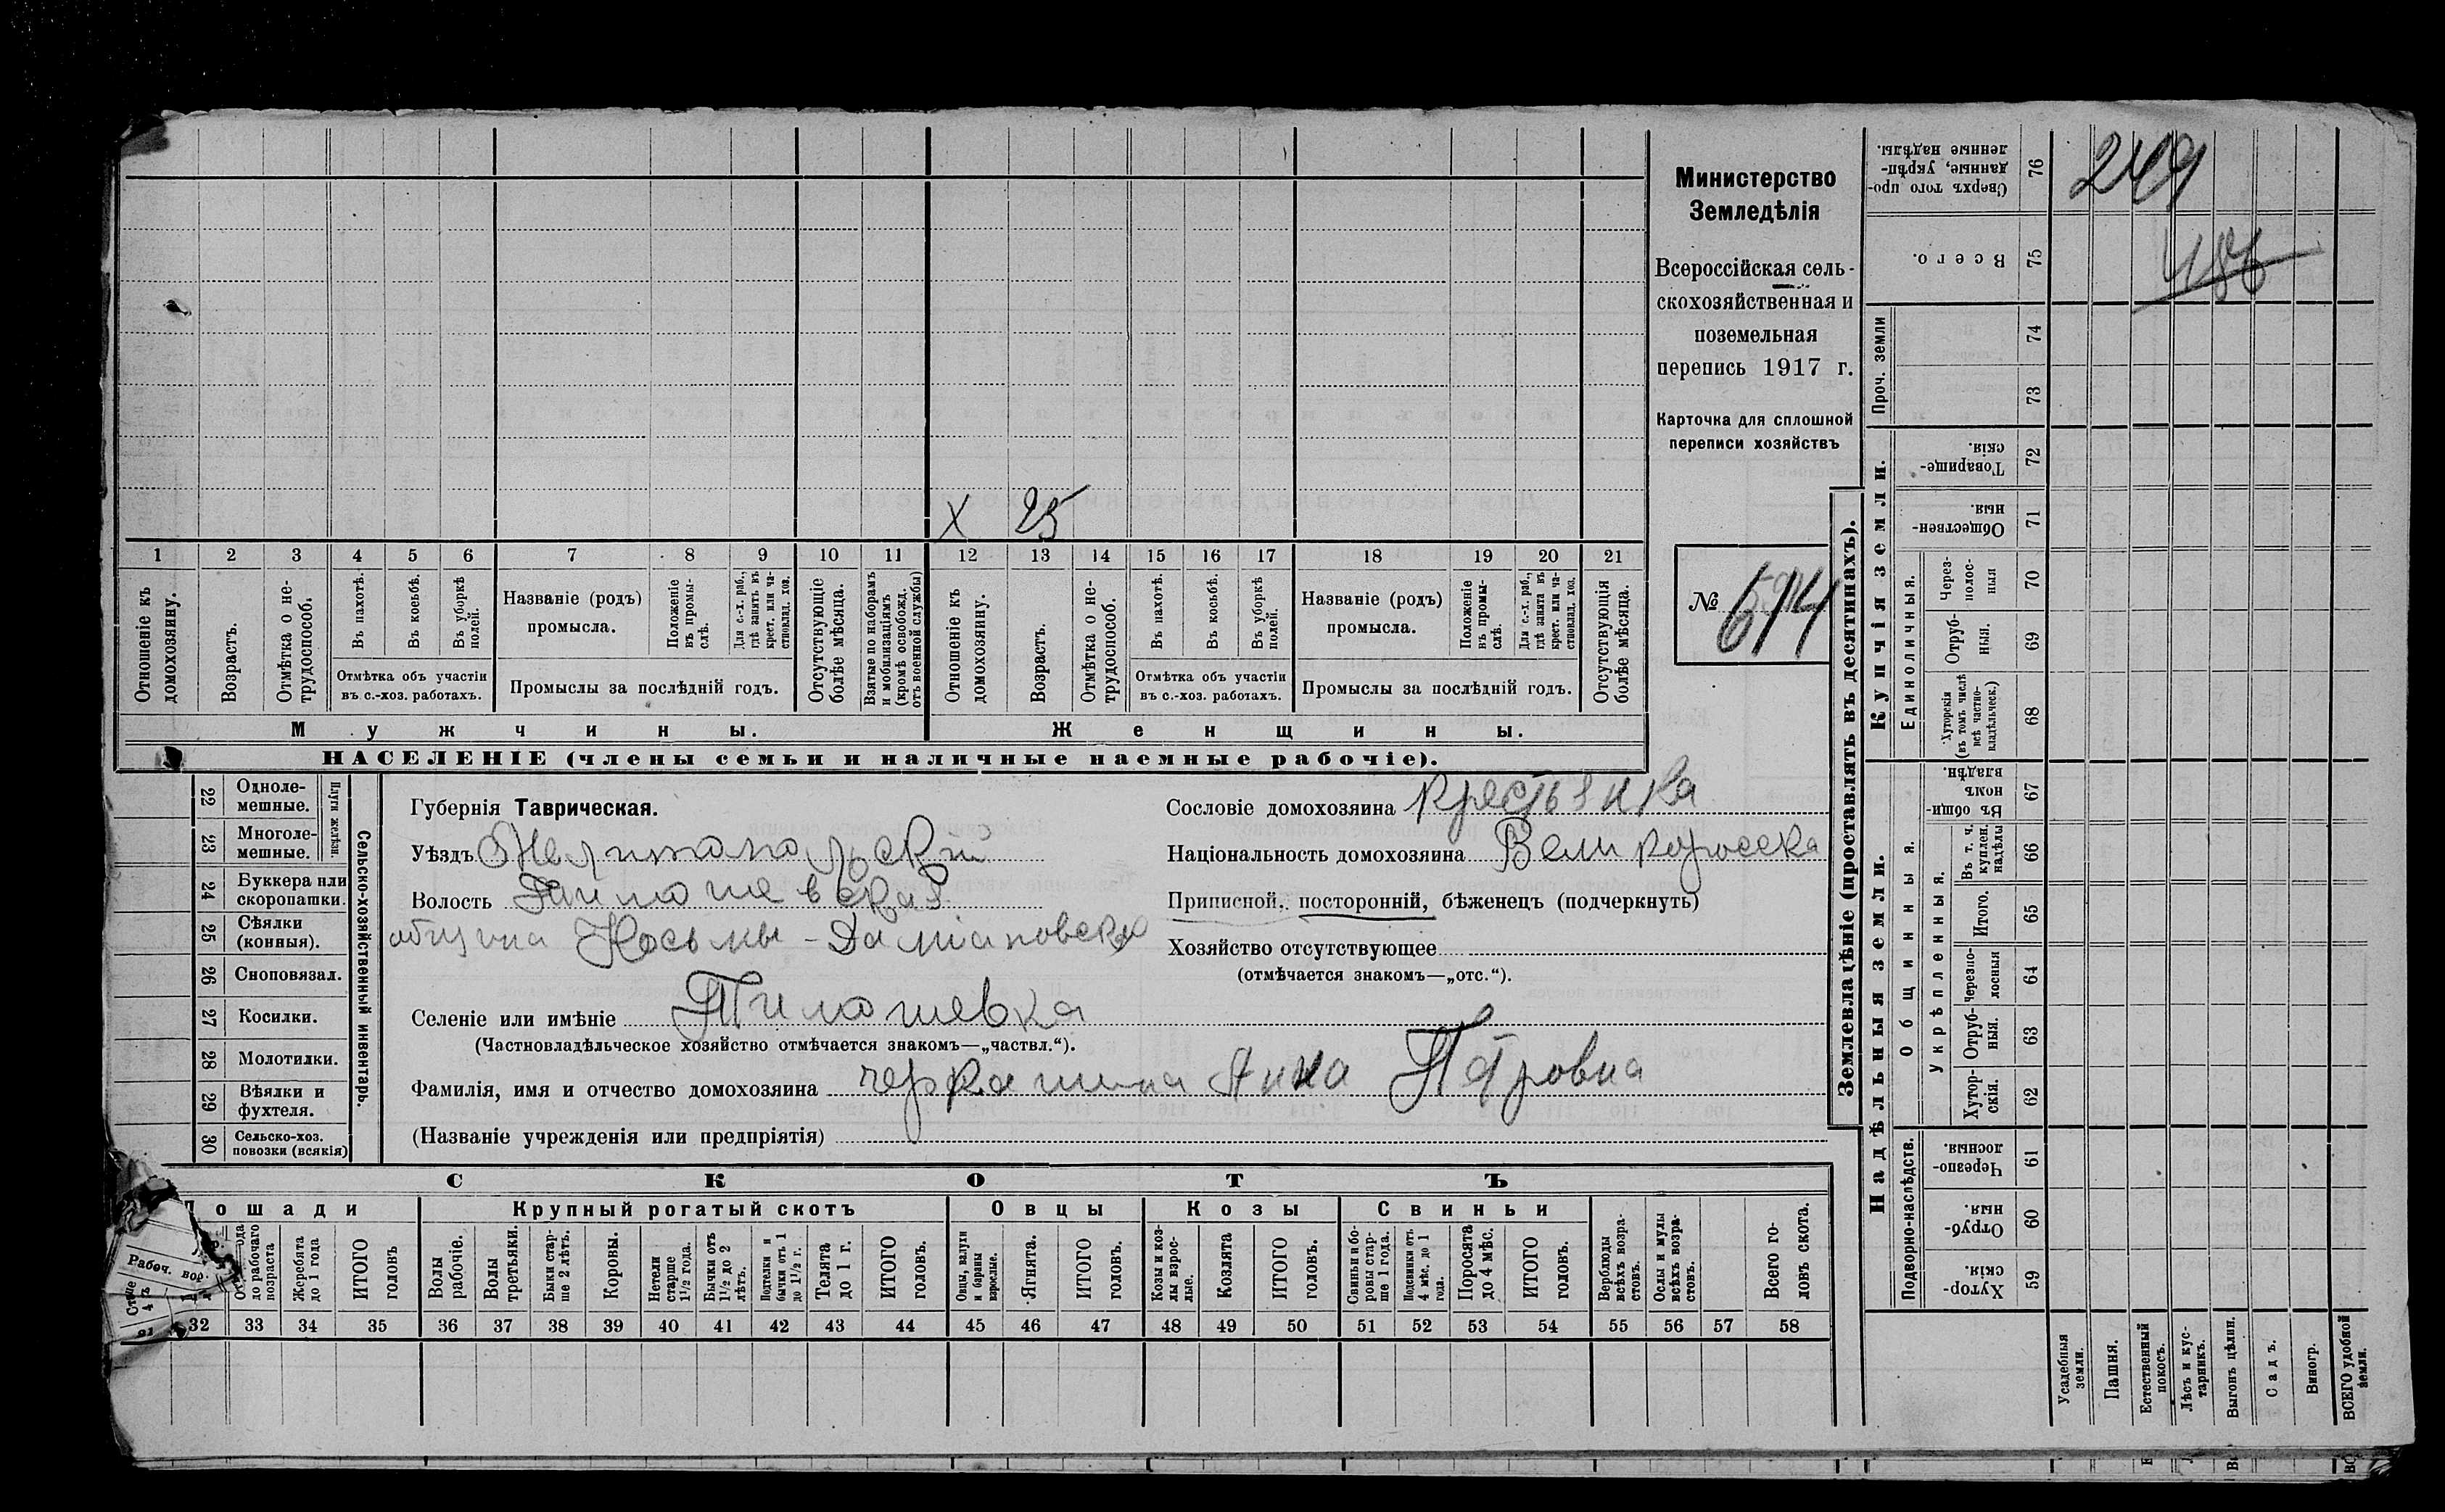 Министерство
Земледѣлія
Всероссійская сель-
скохозяйственная и
поземельная
перепись 1917 г.
Карточка для сплошной
переписи хозяйствъ
№ 614
X 25
1 2 3 4 5 6 7 8 9 10 11 12 13 14 15 16 17 18 19 20 21
Отношеніе къ домохозяину.
Возрастъ.
Отмѣтка о не-трудоспособ.
Въ пахотѣ.
Въ косьбѣ.
Въ уборкѣ полей.
Отмѣтка объ участіи
въ с.-хоз. работахъ.
Названіе (родъ)
промысла.
Положеніе въ промы-слѣ.
Для с.-х. раб., гдѣ занятъ въ крест. или ча-стновлад. хоз.
Промыслы за послѣдній годъ.
Отсутствующіе болѣе мѣсяца.
Взятые по наборамъ и мобилизаціямъ (кромѣ освобожд. отъ военной службы)
Отношеніе къ домохозяину.
Возрастъ.
Отмѣтка о не-трудоспособ.
Въ пахотѣ.
Въ косьбѣ.
Въ уборкѣ полей.
Отмѣтка объ участіи
въ с.-хоз. работахъ.
Названіе (родъ)
промысла.
Положеніе въ промы-слѣ.
Для с.-х. раб., гдѣ занята въ крест. или ча-стновлад. хоз.
Промыслы за послѣдній годъ.
Отсутствующія болѣе мѣсяца.
Мужчины. Женщины.
НАСЕЛЕНІЕ (члены семьи и наличные наемные рабочіе).
22 Одноле-мешные.
23 Многоле-мешные.
Плуги желѣзн.
24 Буккера или скоропашки.
25 Сѣялки (конныя).
26 Сноповязал.
27 Косилки.
28 Молотилки.
29 Вѣялки и фухтеля.
30 Сельско-хоз. повозки (всякія)
Сельско-хозяйственный инвентарь.
Губернія Таврическая.
Уѣздъ Мелитопольский
Волость Тимошевская
община Косьмы-Даміановска
Селеніе или имѣніе Тимошевка
(Частновладѣльческое хозяйство отмѣчается знакомъ—„частвл.“).
Фамилія, имя и отчество домохозяина Черкашина Анна Петровна
(Названіе учрежденія или предпріятія)
Сословіе домохозяина крестьянка
Національность домохозяина Великоросска
Приписной, посторонній, бѣженецъ (подчеркнуть)
Хозяйство отсутствующее
(отмѣчается знакомъ—„отс.“).
СКОТЪ
Лошади Крупный рогатый скотъ Овцы Козы Свиньи
Рабоч. воз.
до рабочаго возраста
Жеребята до 1 года
ИТОГО головъ
Волы рабочіе.
Волы третьяки.
Быки стар-ше 2 лѣтъ.
Коровы.
Нетели старше 1½ года.
Бычки отъ 1½ до 2 лѣтъ.
Подтелки и бычки отъ 1 до 1½ г.
Телята до 1 г.
ИТОГО головъ.
Овцы, валухи и бараны взрослые.
Ягнята.
ИТОГО головъ.
Козы и коз-лы взрос-лые.
Козлята
ИТОГО головъ.
Свиньи и бо-ровы стар-ше 1 года.
Подсвинки отъ 4 мѣс. до 1 года.
Поросята до 4 мѣс.
ИТОГО головъ.
Верблюды всѣхъ возра-стовъ.
Ослы и мулы всѣхъ возра-стовъ.
Всего го-ловъ скота.
32 33 34 35 36 37 38 39 40 41 42 43 44 45 46 47 48 49 50 51 52 53 54 55 56 57 58
Землевладѣніе (проставлять въ десятинахъ).
249
486
Сверхъ того про-данные, укрѣп-ленные надѣлы. 76
Всего. 75
Проч. земли
74
73
Купчія земли.
Товарище-скія. 72
Обществен-ныя. 71
Единоличныя.
Через-полос-ныя 70
Отруб-ныя. 69
Хуторскія (въ томъ числѣ всѣ частно-владѣльческ.) 68
Надѣльныя земли.
Общинныя.
Въ общи-номъ владѣн. 67
Укрѣпленныя.
Въ т. ч. куплен. надѣлы 66
Итого. 65
Черезпо-лосныя 64
Отруб-ныя. 63
Хутор-скія. 62
Подворно-наслѣдств.
Черезпо-лосныя. 61
Отруб-ныя. 60
Хутор-скія. 59
Усадебныя земли.
Пашня.
Естественный покосъ.
Лѣсъ и кус-тарникъ.
Выгонъ цѣлин.
Садъ.
Виногр.
ВСЕГО удобной земли.